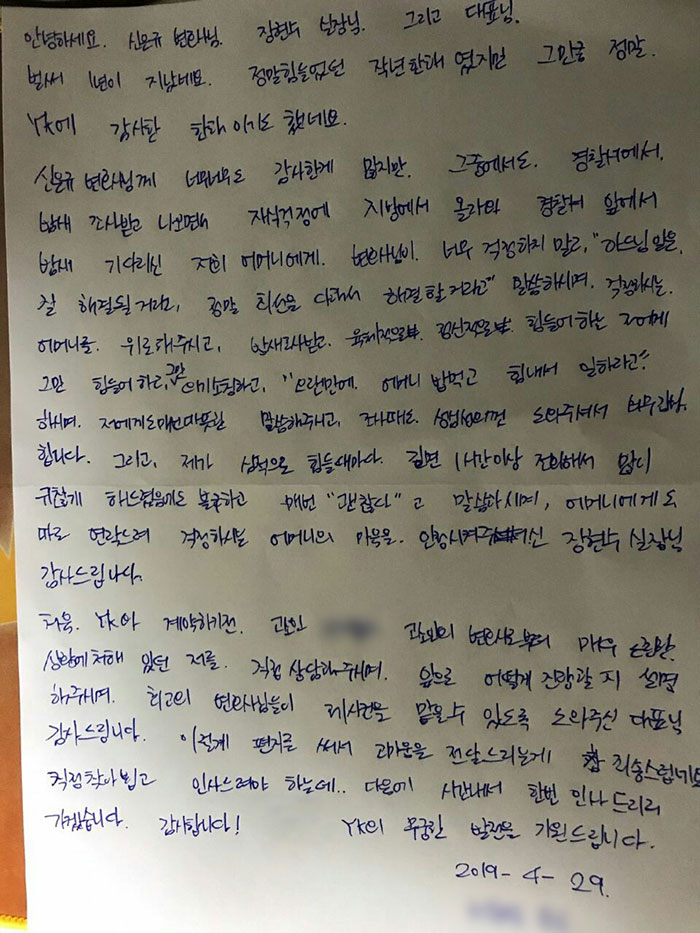 안녕하세요. 신은규 변호사님. 장현수 실장님. 그리고 대표님.
벌써 1년이 지났네요. 정말힘들었던 작년한해 였지만 그만큼 정말.
YK에 감사한 한해 이기도 했네요.
신은규 변호사님께 너무너무도 감사한게 많지만. 그중에서도. 경찰서에서.
밤새 조사받고 나오면서 자식걱정에 지방에서 올라와 경찰서 앞에서
밤새 기다리신 저희 어머니에게. 변호사님이. 너무 걱정하지 말고, "아드님 일은.
잘 해결될거라고, 정말 최선을 다해서 해결할거라고" 말씀하시며. 걱정하시는.
어머니를. 위로해주시고, 밤새조사받고. 육체적으로. 정신적으로. 힘들어 하는 저에게
그만 힘들어 하고, 그만 의기소침하고, "오랜만에. 어머니 밥먹고 힘내서 일하라고".
하시며. 저에게도매번따뜻한 말씀해주시고, 조사때도. 성심성의껏 도와주셔서 너무감사.
합니다. 그리고, 제가 심적으로 힘들때마다. 길면 1시간이상 전화해서 많이
귀찮게 해드렸음에도 불구하고 매번 "괜찮다"고 말씀하시며, 어머니에게도
따로 연락드려 걱정하시는 어머니의 마음을. 안정시켜주신 장현수 실장님
감사드립니다.
처음. YK와 계약하기전. 고소인 고소인의 변호사로부터 매우 곤란한.
상황에처해 있던 저를. 직접 상담해주시며. 앞으로 어떻게 진행될 지 설명
해주시며. 최고의 변호사님들이 제사건을 맡을수 있도록 도와주신 대표님
감사드립니다. 이렇게 편지로 써서 고마움을 전달드리는게 참 죄송스럽네요
직접찾아뵙고 인사드려야 하는데.. 다음에 시간내서 한번 인사 드리러
가겠습니다. 감사합니다! YK의 무궁한 발전을 기원드립니다.
2019-4-29.